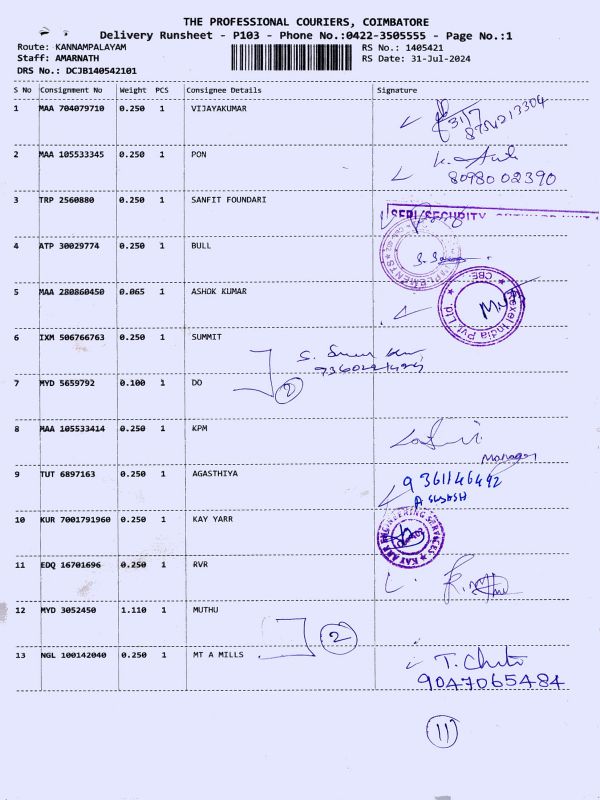 THE PROFESSIONAL COURIERS, COIMBATORE
Delivery Runsheet - P103 - Phone No.:0422-3505555 - Page No.:1
Route: KANNAMPALAYAM RS No.: 1405421
Staff: AMARNATH RS Date: 31-Jul-2024
DRS No.: DCJB140542101
S No Consignment No Weight PCS Consignee Details Signature
1 MAA 704079710 0.250 1 VIJAYAKUMAR
31/7
2 MAA 105533345 0.250 1 PON
80980 02390
3 TRP 2560880 0.250 1 SANFIT FOUNDARI
4 ATP 30029774 0.250 1 BULL
5 MAA 280860450 0.065 1 ASHOK KUMAR
6 IXM 506766763 0.250 1 SUMMIT
7 MYD 5659792 0.100 1 DO
2
8 MAA 105533414 0.250 1 KPM
Manager
9 TUT 6897163 0.250 1 AGASTHIYA
9361146492
10 KUR 7001791960 0.250 1 KAY YARR
KAY ARR ENGINEERING SERVICES
11 EDQ 16701696 0.250 1 RVR
12 MYD 3052450 1.110 1 MUTHU
2
13 NGL 100142040 0.250 1 MT A MILLS
9047065484
11